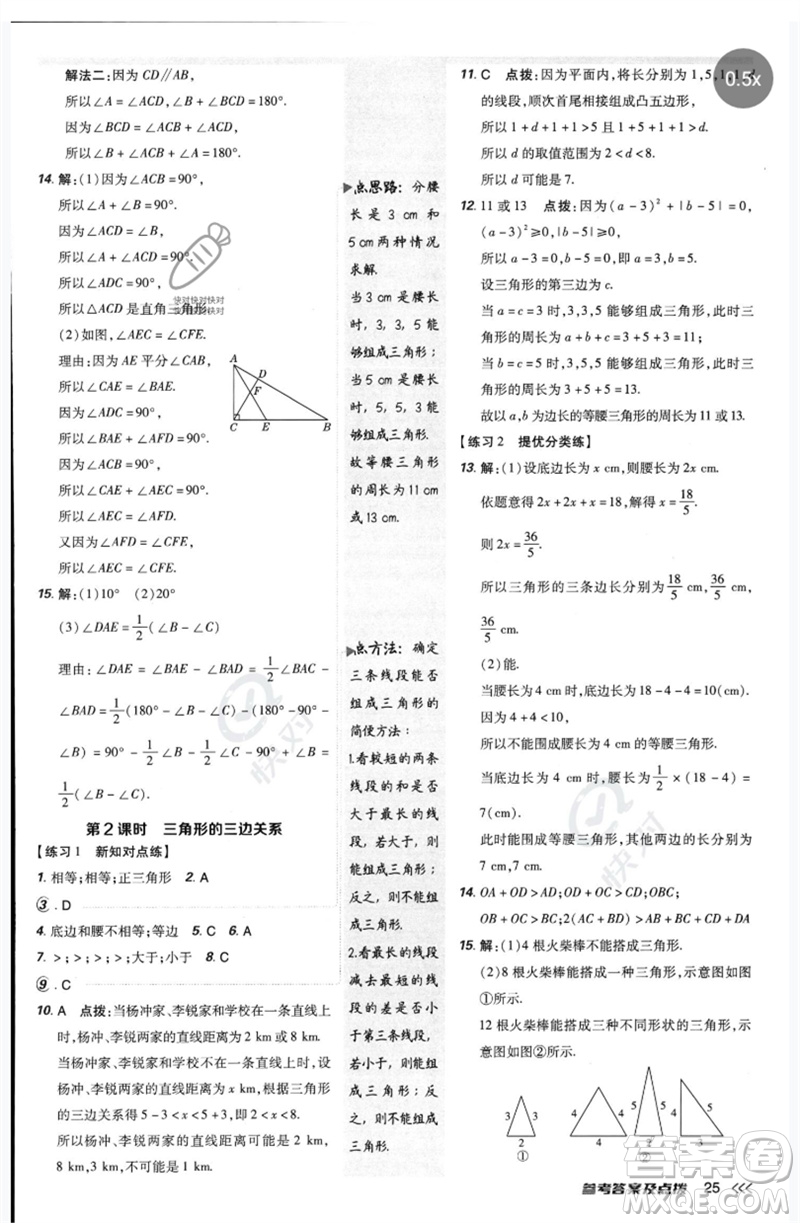 解法二:因为 CD∥AB,
所以∠A=∠ACD,∠B+∠BCD=180°.
因为∠BCD=∠ACB+∠ACD,
所以∠B+∠ACB+∠A=180°.
14. 解:(1)因为∠ACB=90°,
所以∠A+∠B=90°.
因为∠ACD=∠B,
所以∠A+∠ACD=90°.
所以∠ADC=90°.
所以△ACD 是直角三角形.
(2)如图,∠AEC=∠CFE.
理由:因为 AE 平分∠CAB,
所以∠CAE=∠BAE.
因为∠ACD=∠B,
所以∠BAE+∠AFD=90°,
∠CAE+∠AEC=90°.
所以∠AEC=∠AFD.
又因为∠AFD=∠CFE,
所以∠AEC=∠CFE.
A
D
F
C
E
B
15. 解:(1)10° (2)20°
(3)∠DAE=1/2(∠B-∠C)
理由:∠DAE=∠BAE-∠BAD=1/2∠BAC
-∠BAD=1/2(180°-∠B-∠C)-(90°
-∠B)=90°-1/2∠B-1/2∠C-90°+∠B=
1/2(∠B-∠C).
第2课时 三角形的三边关系
【练习1 新知对点练】
1. 相等;相等;正三角形 2. A
3. D
4. 底边和腰不相等;等边 5. C 6. A
7. >;>;>;大于;小于 8. C
9. C
10. A 点拨:当杨冲家、李锐家和学校在一条直线上
时,杨冲、李锐两家的直线距离为 2 km 或 8 km.
当杨冲家、李锐家和学校不在一条直线上时,设
杨冲、李锐两家的直线距离为 x km,根据三角形
的三边关系得 5-3<x<5+3,即 2<x<8.
所以杨冲、李锐两家的直线距离可能为 2 km,
8 km,3 km,不可能是 1 km.
点思路:分腰
长是 3 cm 和
5 cm 两种情况
求解.
当 3 cm 是腰长
时,3,3,5 能
够组成三角形;
当 5 cm 是腰长
时,5,5,3 能
够组成三角形.
故等腰三角形
的周长为 11 cm
或 13 cm.
点方法:确定
三条线段能否
组成三角形的
简便方法:
1.看较短的两条
线段的和是否
大于最长的线
段,如果大于,
则能组成三角形;
反之,则不能组
成三角形.
2.看最长的线段
减去最短的线
段的差是否小
于第三条线段,
若小于,则能组
成三角形;反
之,则不能组成
三角形.
11. C 点拨:因为平面内,将长分别为 1,5,1,1,d
的线段,顺次首尾相接组成凸五边形,
所以 1+d+1+1>5 且 1+5+1+1>d.
所以 d 的取值范围为 2<d<8.
所以 d 可能是 7.
0.5x
12. 11 或 13 点拨:因为(a-3)²+|b-5|=0,
(a-3)²≥0,|b-5|≥0,
所以 a-3=0,b-5=0,即 a=3,b=5.
设三角形的第三边为 c.
当 a=c=3 时,3,3,5 能够组成三角形,此时三
角形的周长为 a+b+c=3+5+3=11;
当 b=c=5 时,3,5,5 能够组成三角形,此时三
角形的周长为 3+5+5=13.
故以 a,b 为边长的等腰三角形的周长为 11 或 13.
【练习2 提优分类练】
13. 解:(1)设底边长为 x cm,则腰长为 2x cm.
依题意得 2x+2x+x=18,解得 x=18/5.
则 2x=36/5.
所以三角形的三条边长分别为 18/5 cm,36/5 cm,
36/5 cm.
(2)能.
当腰长为 4 cm 时,底边长为 18-4-4=10(cm).
因为 4+4<10,
所以不能围成腰长为 4 cm 的等腰三角形.
当底边长为 4 cm 时,腰长为 1/2×(18-4)=
7(cm).
此时能围成等腰三角形,其他两边的长分别为
7 cm,7 cm.
14. OA+OD>AD;OD+OC>CD;OBC;
OB+OC>BC;AB+BC+CD+DA
15. 解:(1)4 根火柴棒不能搭成三角形.
(2)8 根火柴棒能搭成一种三角形,示意图如图
①所示.
12 根火柴棒能搭成三种不同形状的三角形,
示意图如图②所示.
3 3
2
①
4 4
4
5 5
2
②
4 5
3
参考答案及点拨 25 <<<
快对快对快对
快对
快对
答案圈